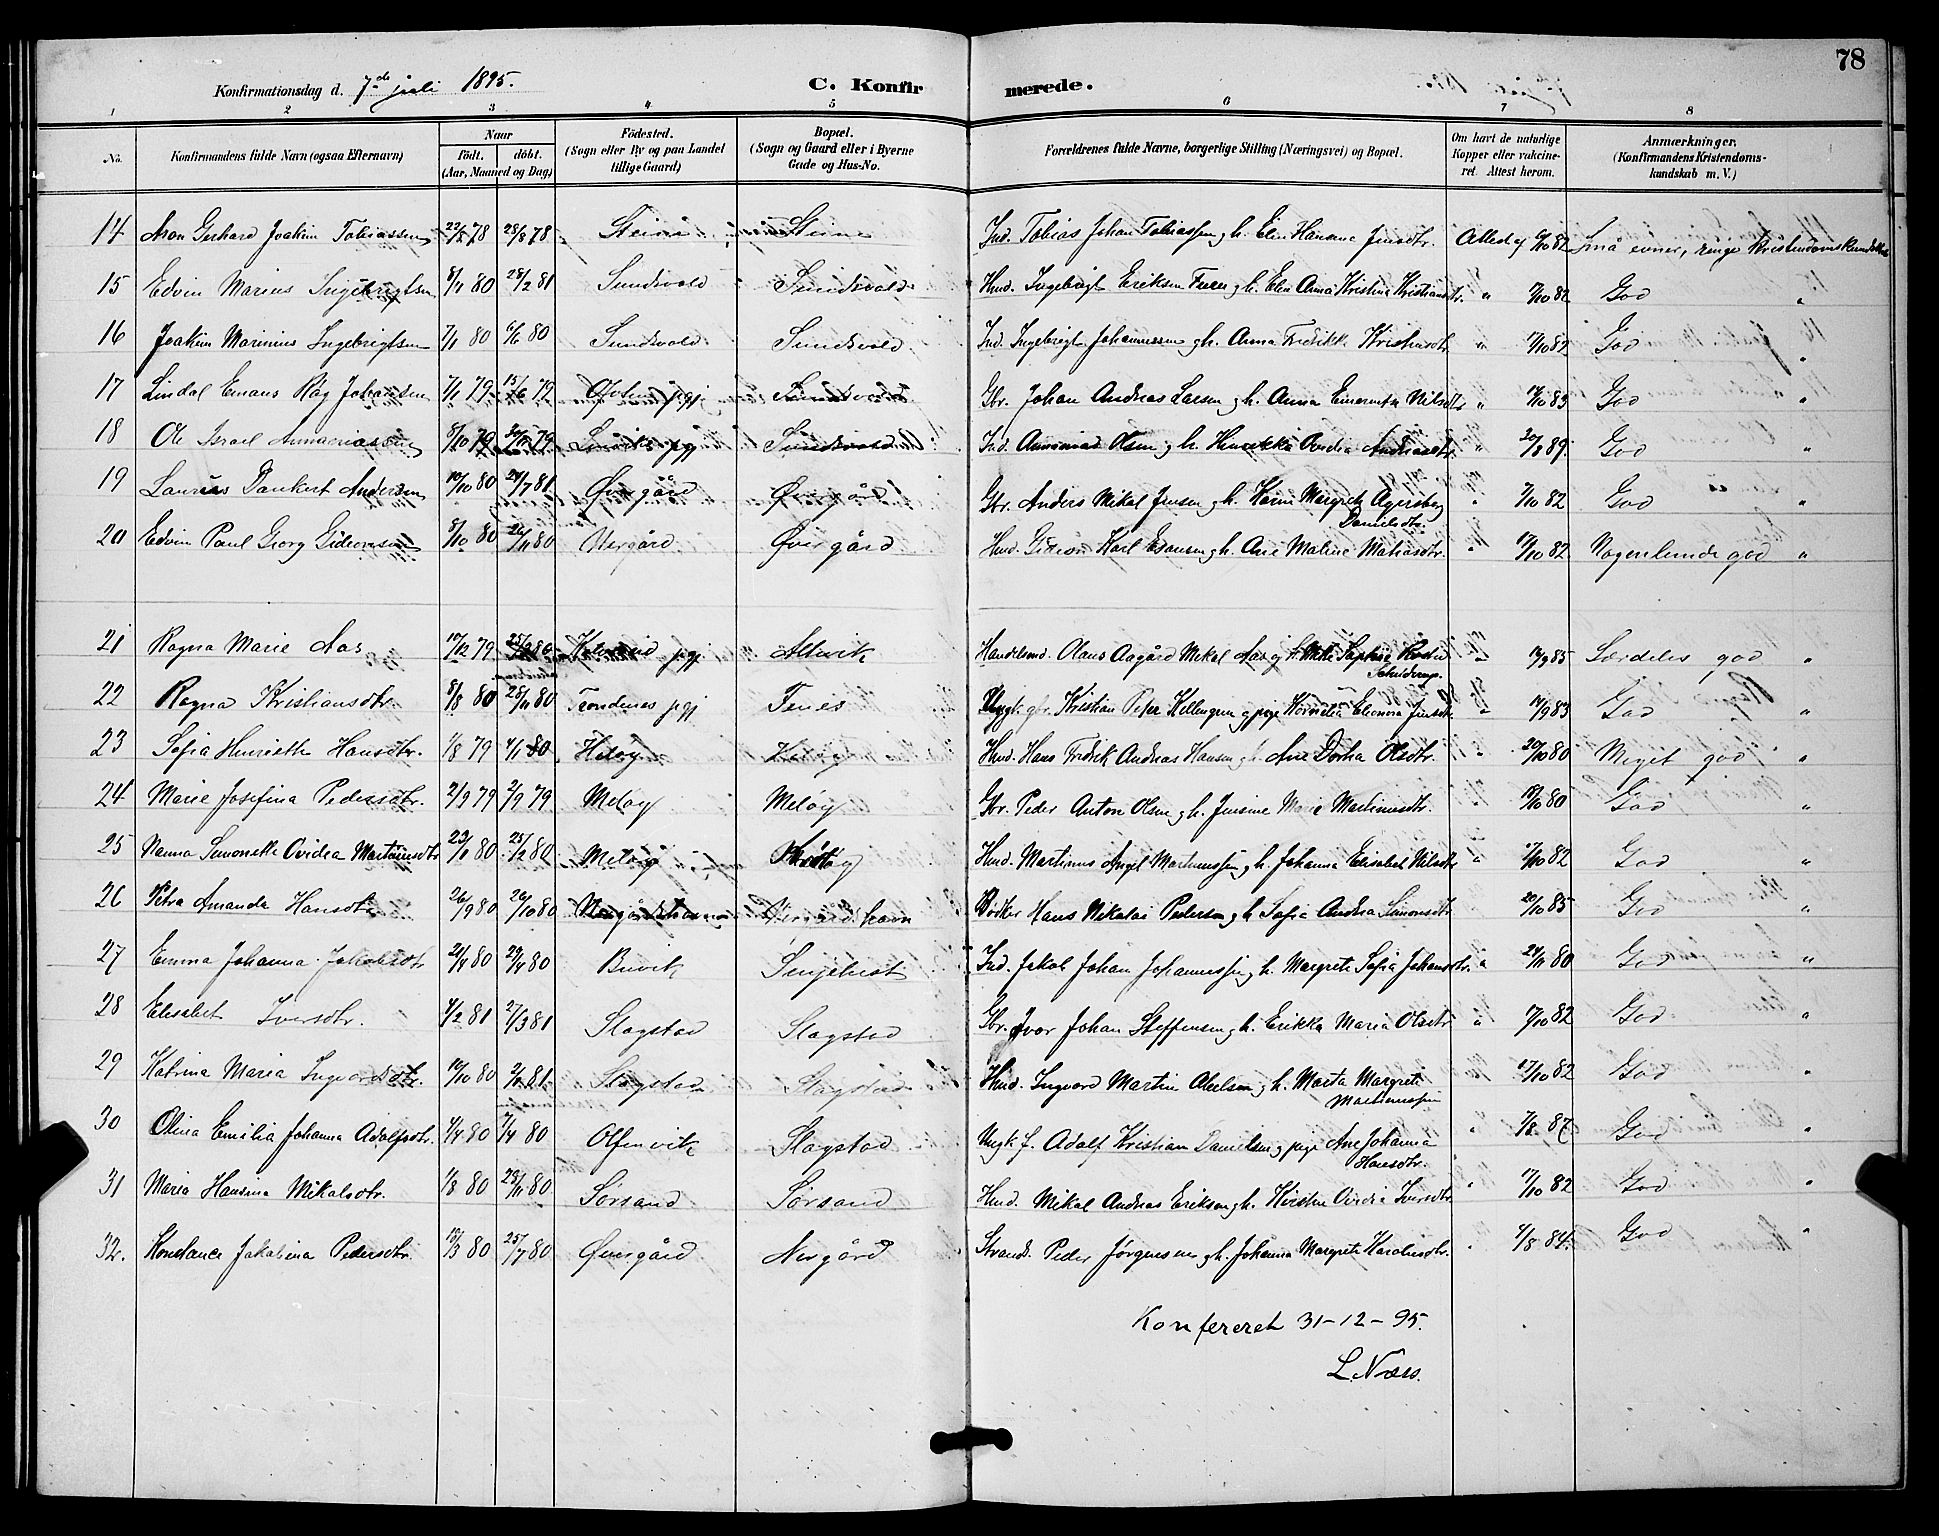 78
Konfirmationsdag d. 7de juli 1895.
C. Konfirmerede.
1 2 3 4 5 6 7 8
No.
Konfirmandens fulde Navn (ogsaa Efternavn)
Naar
födt. döbt.
(Aar, Maaned og Dag)
Födested.
(Sogn eller By og paa Landet
tillige Gaard)
Bopæl.
(Sogn og Gaard eller i Byerne
Gade og Hus-No.
Forældrenes fulde Navne, borgerlige Stilling (Næringsvei) og Bopæl.
Om havt de naturlige
Kopper eller vakcineret.
Attest herom.
Anmærkninger.
(Konfirmandens Kristendomskundskab
m. V.)
14 Aron Gerhard Joakim Tobiassen 22/2 78 28/8 78 Steine Steine Ind. Tobias Johan Tobiassen g h. Elen Hansine Jensdtr. Attest af 7/10 82 Små evner, ringe Kristendomskundskab
15 Edvin Marius Ingebrigtsen 8/11 80 28/2 81 Sundsvold Sundsvold Hmd. Ingebrigt Eriksen g h. Elen Anna Kristine Kristiansdtr. " 7/10 82 God "
16 Joakim Marinius Ingebrigtsen 7/1 80 6/6 80 Sundsvold Sundsvold Ind. Ingebrigt Johannessen g h. Anna Fredrikke Kristiansdtr. " 7/10 82 God "
17 Lindal Emans Råg Johansen 7/1 79 15/6 79 Øfoten pgj Sundsvold Gbr. Johan Andreas Larsen g h. Anna Emerentse Nilsdtr " 17/10 83 God "
18 Ole Israel Annaniassen 8/10 79 30/11 79 Lenvik pgj Sundsvold Ind. Annanias Olsen g h. Henrikka Ovidia Andreasdtr. " 20/8 89 God "
19 Laurits Dankert Andersen 10/10 80 24/7 81 Øvergård Øvergård Gbr. Anders Mikal Jensen g h. Hanna Margrete Agersborg Danielsdtr. " 7/10 82 God "
20 Edvin Paul Georg Gideonsen 8/10 80 26/11 80 Nergård Øvergård Hmd. Gideon Karl Esausen g h. Ane Maline Matiasdtr. " 17/10 82 Nogenlunde god "
21 Ragna Marie Aas 10/12 79 25/3 80 Kolvereid pgj Allevik Handelsmd. Olaus Aagård Mikal Aas g h. Mette Sophie Schiderup. " 17/9 85 Særdeles god "
22 Ragna Kristiansdtr. 8/8 80 28/11 80 Trondenes pgj Fenes Ungk. gbr. Kristian Peter Kellengren g pige Kornelia Eleonora Jensdtr. " 14/9 83 God "
23 Sofia Henriette Hansdtr. 1/8 79 4/1 80 Hmd. Hans Fredrik Andreas Hansen g h. Ane Dorthea Olsdtr. " 20/10 80 Meget god "
24 Marie Josefina Pedersdtr. 2/9 79 2/9 79 Meløy Meløy Gbr. Peder Anton Olsen g h. Jensine Maria Martinusdtr. 18/10 80 God "
25 Nanna Simonette Ovidia Martinusdtr 23/1 80 25/2 80 Meløy Hmd. Martinus Angel Martinussen g h. Johanna Elisabet Nilsdtr " 17/10 82 God "
26 Petra Amanda Hansdtr 26/9 80 26/10 80 Nergårdshavn Nergårdshavn Bødker Hans Nikolai Pedersen g h. Sofia Andrea Simonsdtr 20/10 85 God "
27 Emma Johanna Jakobsdtr 21/4 80 29/4 80 Buvik Senjehest Ind. Jakob Johan Johannessen g h. Margrete Sofia Johansdtr. " 24/11 80 God "
28 Elisabet Iversdtr. 4/2 81 27/3 81 Slagstad Slagstad Gbr. Ivar Johan Steffensen g h. Erikka Maria Olsdtr " 17/10 82 God "
29 Katrina Maria Ingvardsdtr. 10/10 80 2/1 81 Slagstad Slagstad Hmd. Ingvard Martin Abelsen g h. Marta Margrete Martinussen 17/10 82 God "
30 Olina Emilia Johanna Adolfsdtr. 4/4 80 7/4 80 Olfenvik Slagstad Ungk. f. Adolf Kristian Danielsen g pige Ane Johanna Hansdtr. " 7/8 87 God "
31 Maria Hansina Mikalsdtr. 1/8 80 28/11 80 Sørsand Sørsand Hmd. Mikal Andreas Eriksen g h. Kirstine Ovidia Iversdtr. " 17/10 82 God "
32. Konstance Jakobina Pedersdtr. 13/3 80 25/7 80 Øvergård Nergård Strands. Peder Jørgensen g h. Johanna Margrete Karolusdtr. " 4/8 84. God "
Konfereret 31-12-95.
L. Næss.